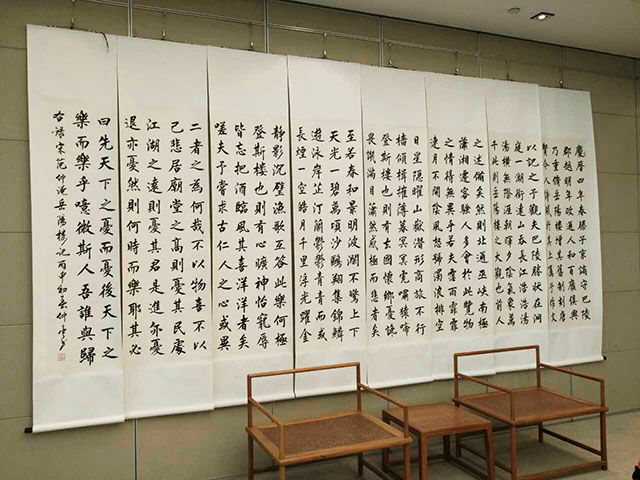 慶曆四年春滕子京謫守巴陵
郡越明年政通人和百廢俱興
乃重修岳陽樓增其舊制刻唐
賢今人詩賦於其上屬予作文
以記之予觀夫巴陵勝狀在洞
庭一湖銜遠山吞長江浩浩湯
湯橫無際涯朝暉夕陰氣象萬
千此則岳陽樓之大觀也前人
之述備矣然則北通巫峽南極
瀟湘遷客騷人多會於此覽物
之情得無異乎若夫霪雨霏霏
連月不開陰風怒號濁浪排空
日星隱曜山嶽潛形商旅不行
檣傾楫摧薄暮冥冥虎嘯猿啼
登斯樓也則有去國懷鄉憂讒
畏譏滿目蕭然感極而悲者矣
至若春和景明波瀾不驚上下
天光一碧萬頃沙鷗翔集錦鱗
游泳岸芷汀蘭鬱鬱青青而或
長煙一空皓月千里浮光躍金
靜影沉璧漁歌互答此樂何極
登斯樓也則有心曠神怡寵辱
皆忘把酒臨風其喜洋洋者矣
嗟夫予嘗求古仁人之心或異
二者之為何哉不以物喜不以
己悲居廟堂之高則憂其民處
江湖之遠則憂其君是進亦憂
退亦憂然則何時而樂耶其必
曰先天下之憂而憂後天下之
樂而樂乎噫微斯人吾誰與歸
右錄宋范仲淹岳陽樓記丙申初